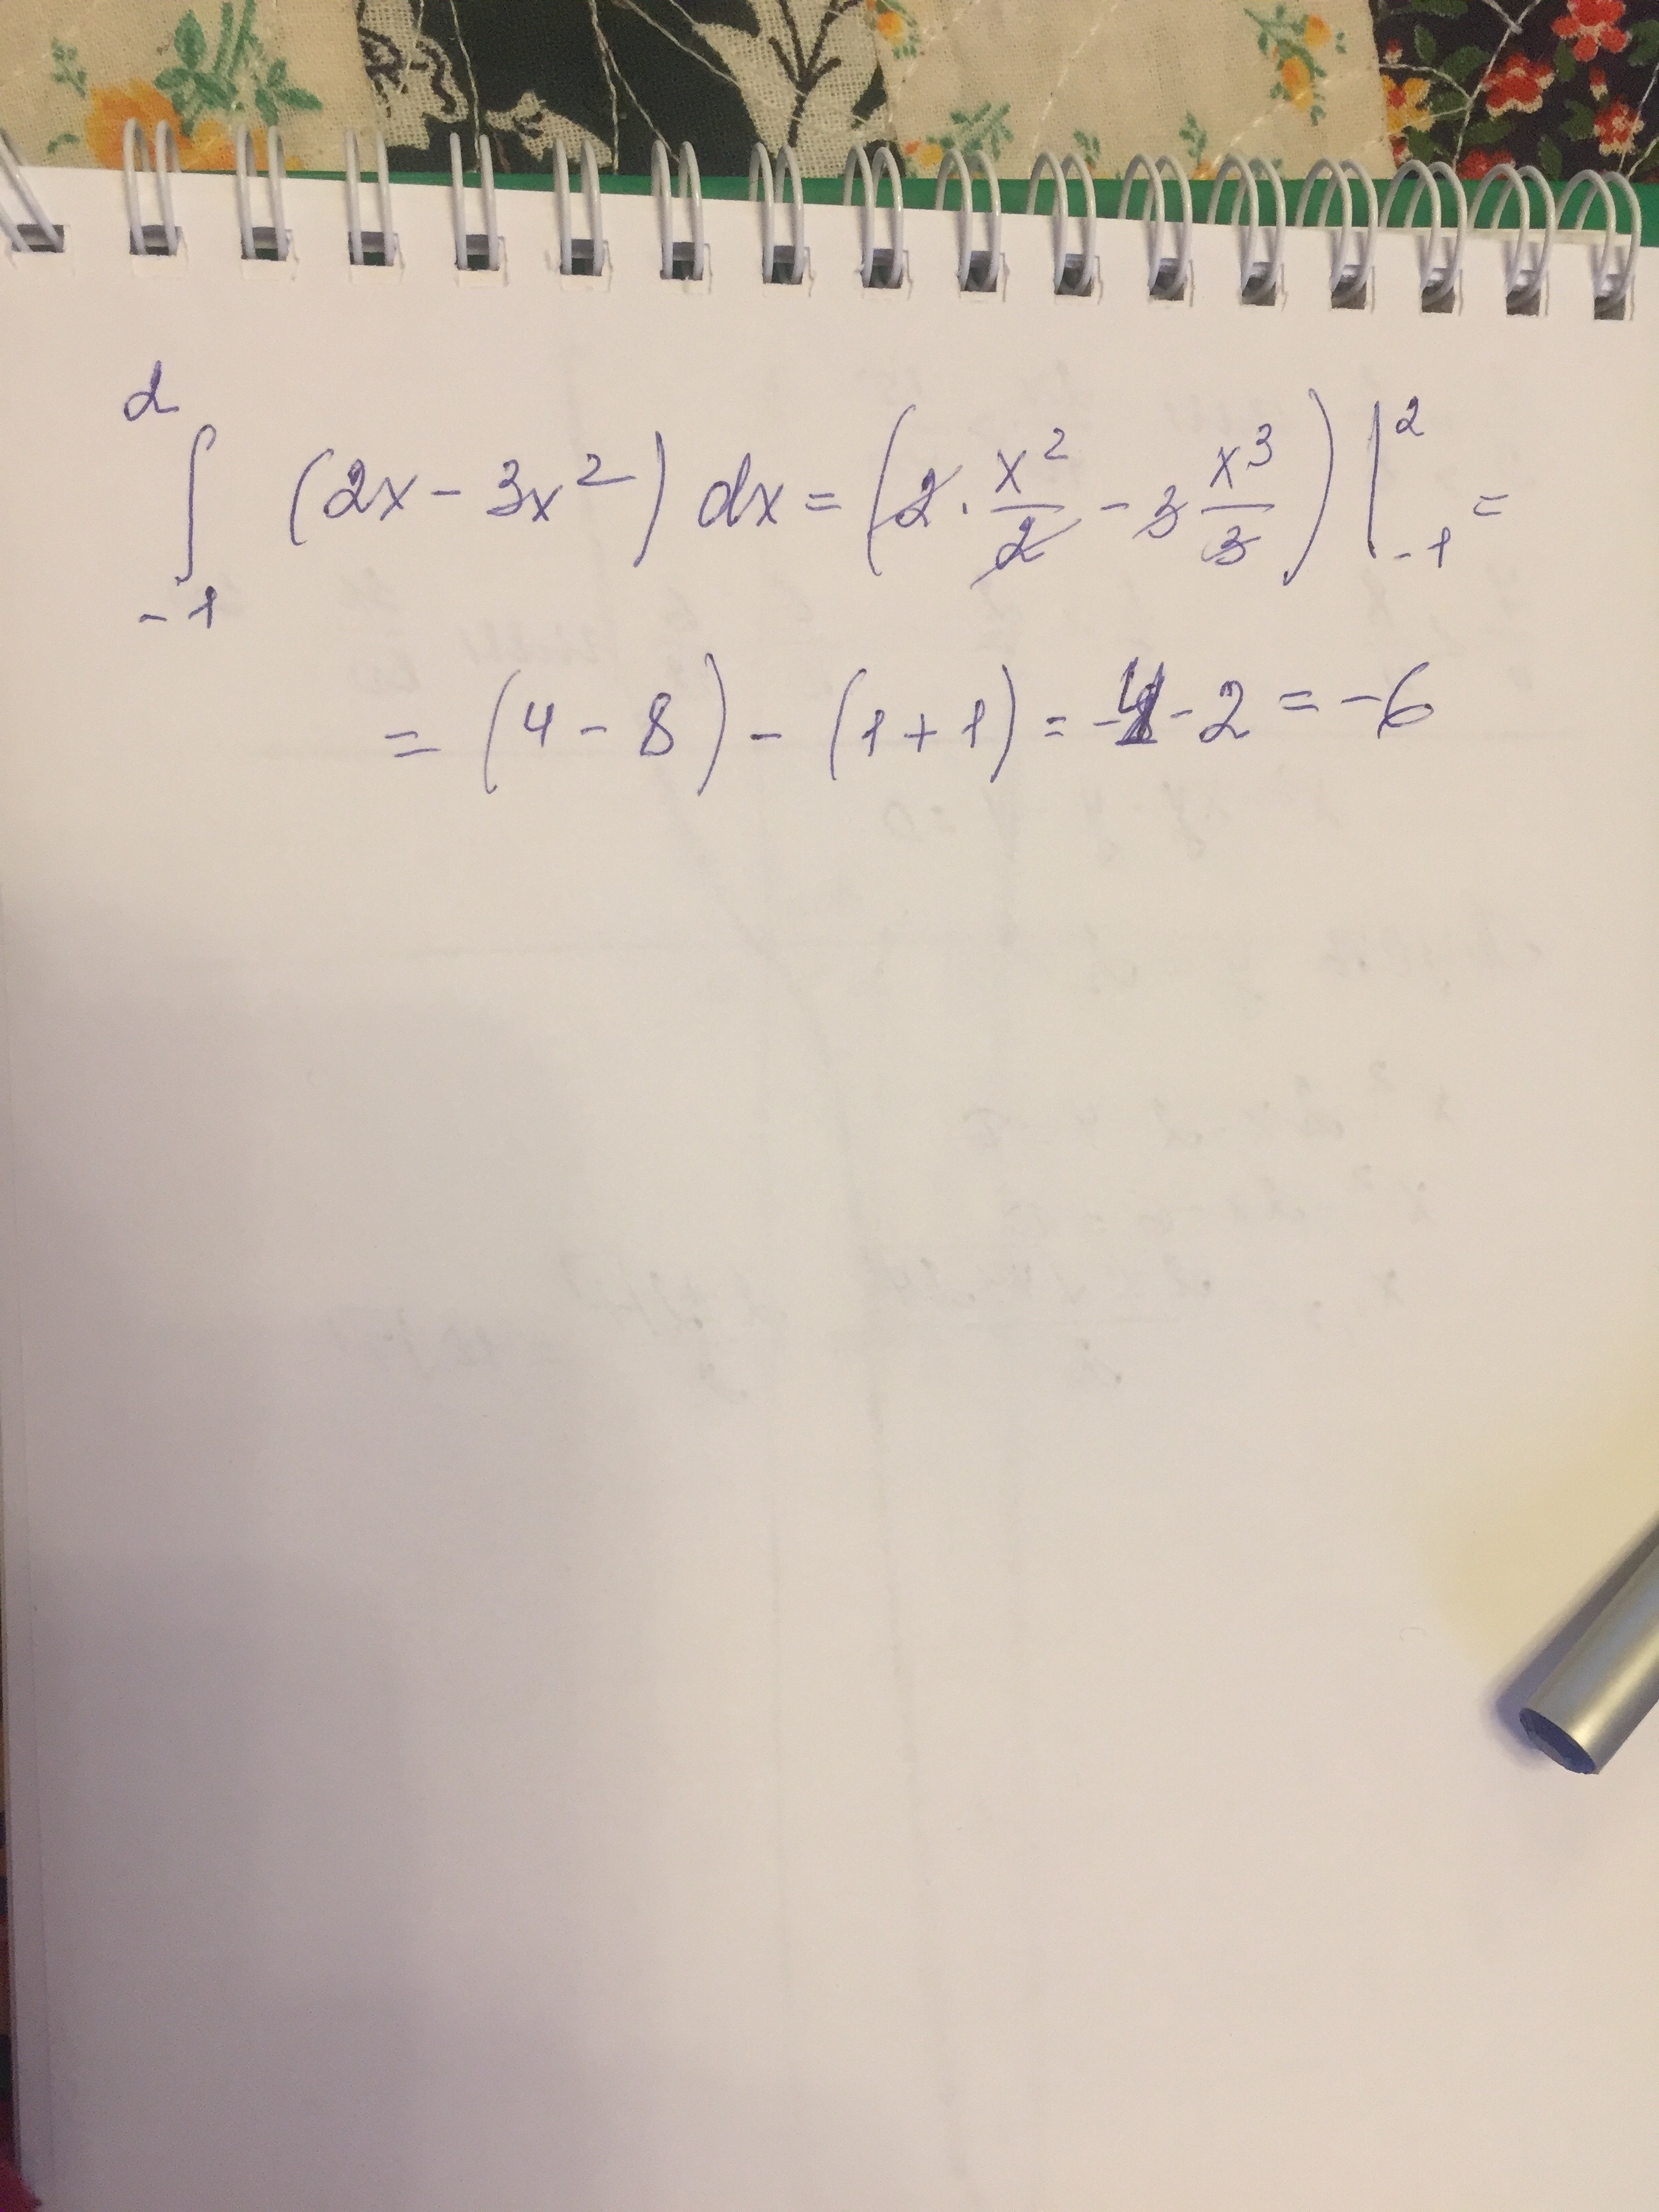 ∫_{-1}^{2} (2x - 3x²) dx = (2 · x²/2 - 3 x³/3) |_{-1}^{2} =
= (4 - 8) - (1 + 1) = -4 - 2 = -6